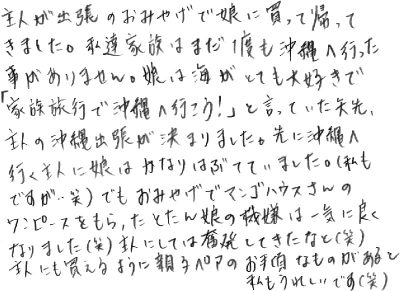 主人が出張のおみやげで娘に買って帰って
きました。私達家族はまだ1度も沖縄へ行った
事がありません。娘は海がとても大好きで
「家族旅行で沖縄へ行こう!」と言っていた矢先、
主人の沖縄出張が決まりました。先に沖縄へ
行く主人に娘はかなりはぶてていました。(私も
ですが‥笑)でもおみやげでマンゴハウスさんの
ワンピースをもらったとたん娘の機嫌は一気に良く
なりました(笑)主人にしては奮発してきたなと(笑)
主人にも買えるように親子ペアのお手頃なものがあると
私もうれしいです(笑)